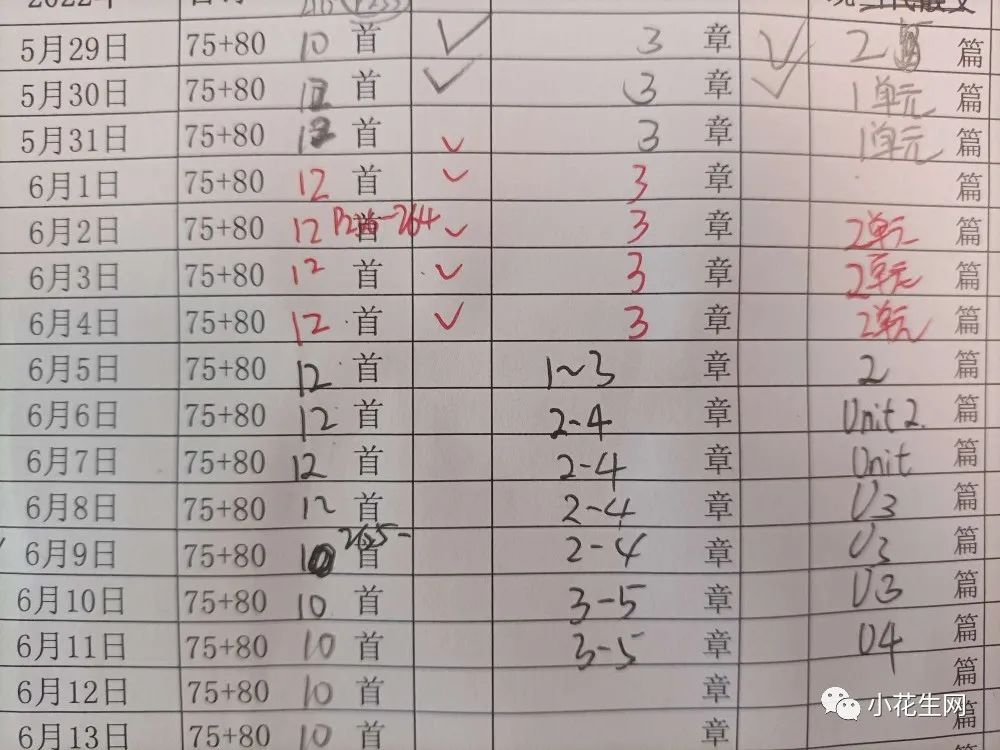 2022年
5月29日 75+80 10 首 ✓ 3 章 ✓ 2 篇
5月30日 75+80 12 首 ✓ 3 章 ✓ 1单元 篇
5月31日 75+80 12 首 ✓ 3 章 1单元 篇
6月1日 75+80 12 首 ✓ 3 章 篇
6月2日 75+80 12 首 -264 ✓ 3 章 2单元 篇
6月3日 75+80 12 首 ✓ 3 章 2单元 篇
6月4日 75+80 12 首 ✓ 3 章 2单元 篇
6月5日 75+80 12 首 1~3 章 2 篇
6月6日 75+80 12 首 2-4 章 Unit 2. 篇
6月7日 75+80 12 首 2-4 章 Unit 篇
6月8日 75+80 12 首 2-4 章 U3 篇
6月9日 75+80 10 首 265- 2-4 章 U3 篇
6月10日 75+80 10 首 3-5 章 U3 篇
6月11日 75+80 10 首 3-5 章 U4 篇
6月12日 75+80 10 首 章 篇
6月13日 75+80 10 首 章 篇
小花生网